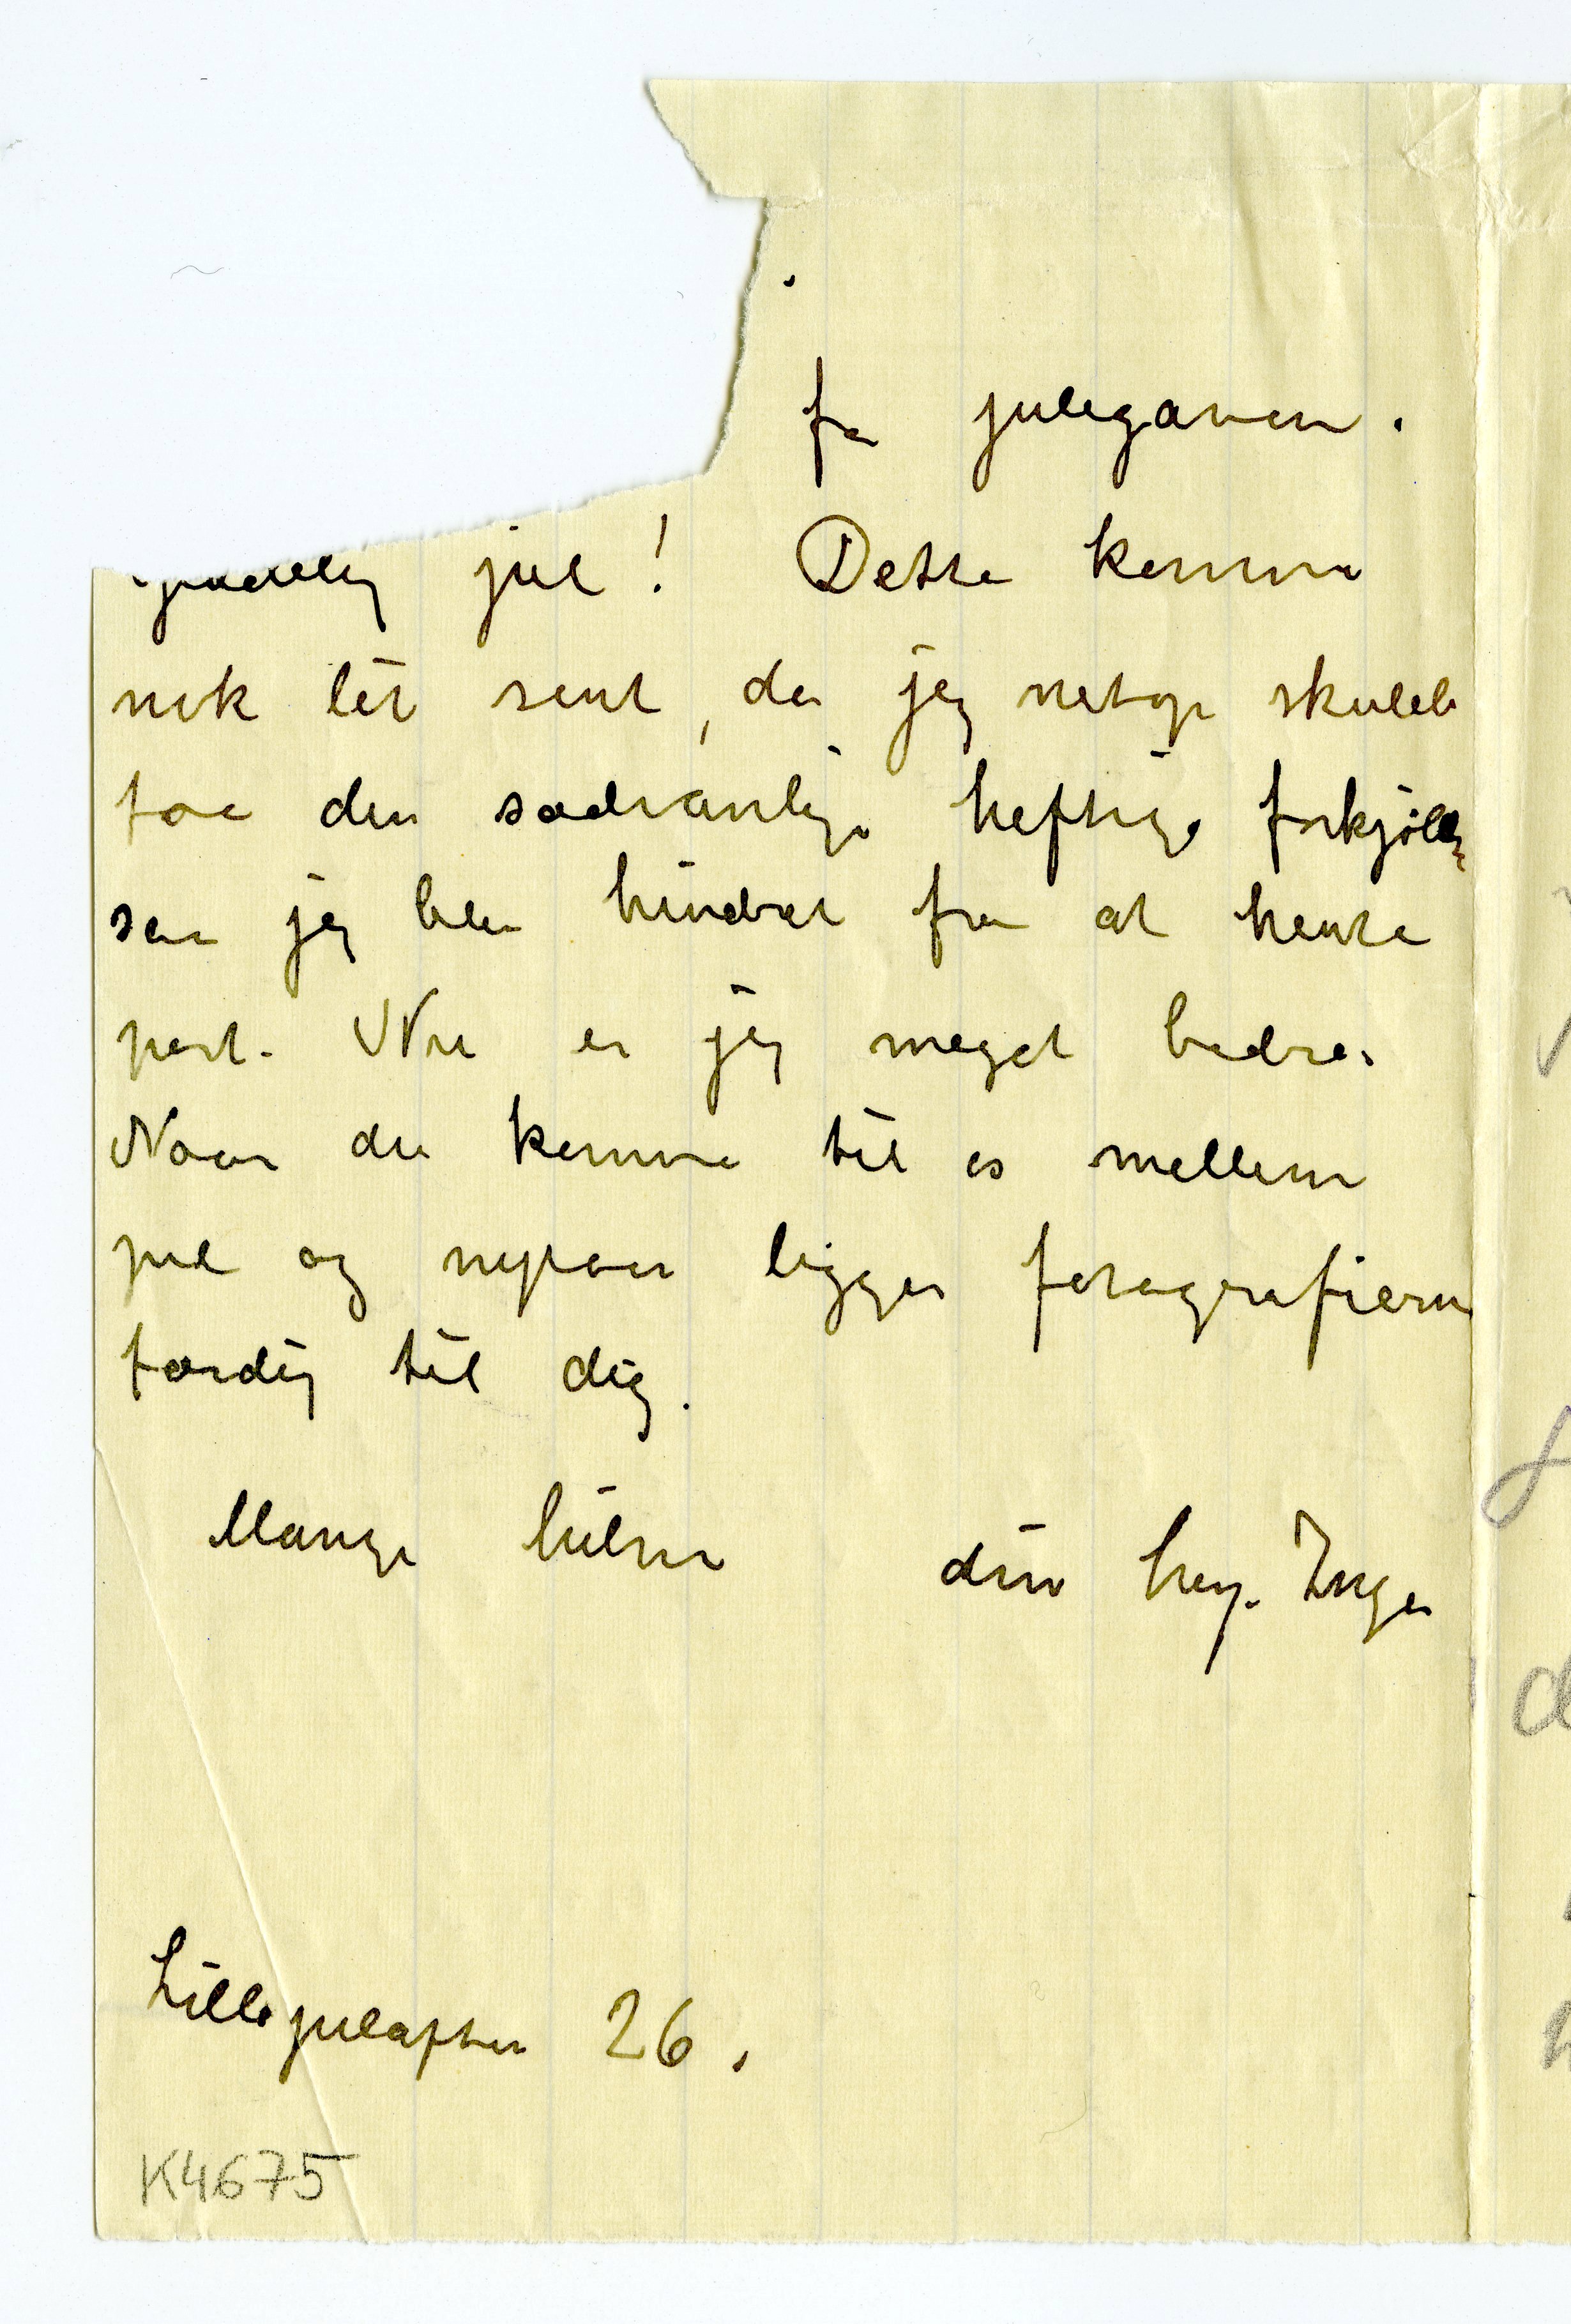 for julegaven.
jul! Dette kommer
nok litt sent, da jeg netop skulde
faa den sedvanlige heftige forkjølelse
saa jeg blev hindret fra at hente
post. Nu er jeg meget bedre.
Naar du kommer til os mellem
jul og nytaar ligger fotografierne
færdig til dig.
Mange hilsner din heng. Inger
Lille julaften 26.
K4675